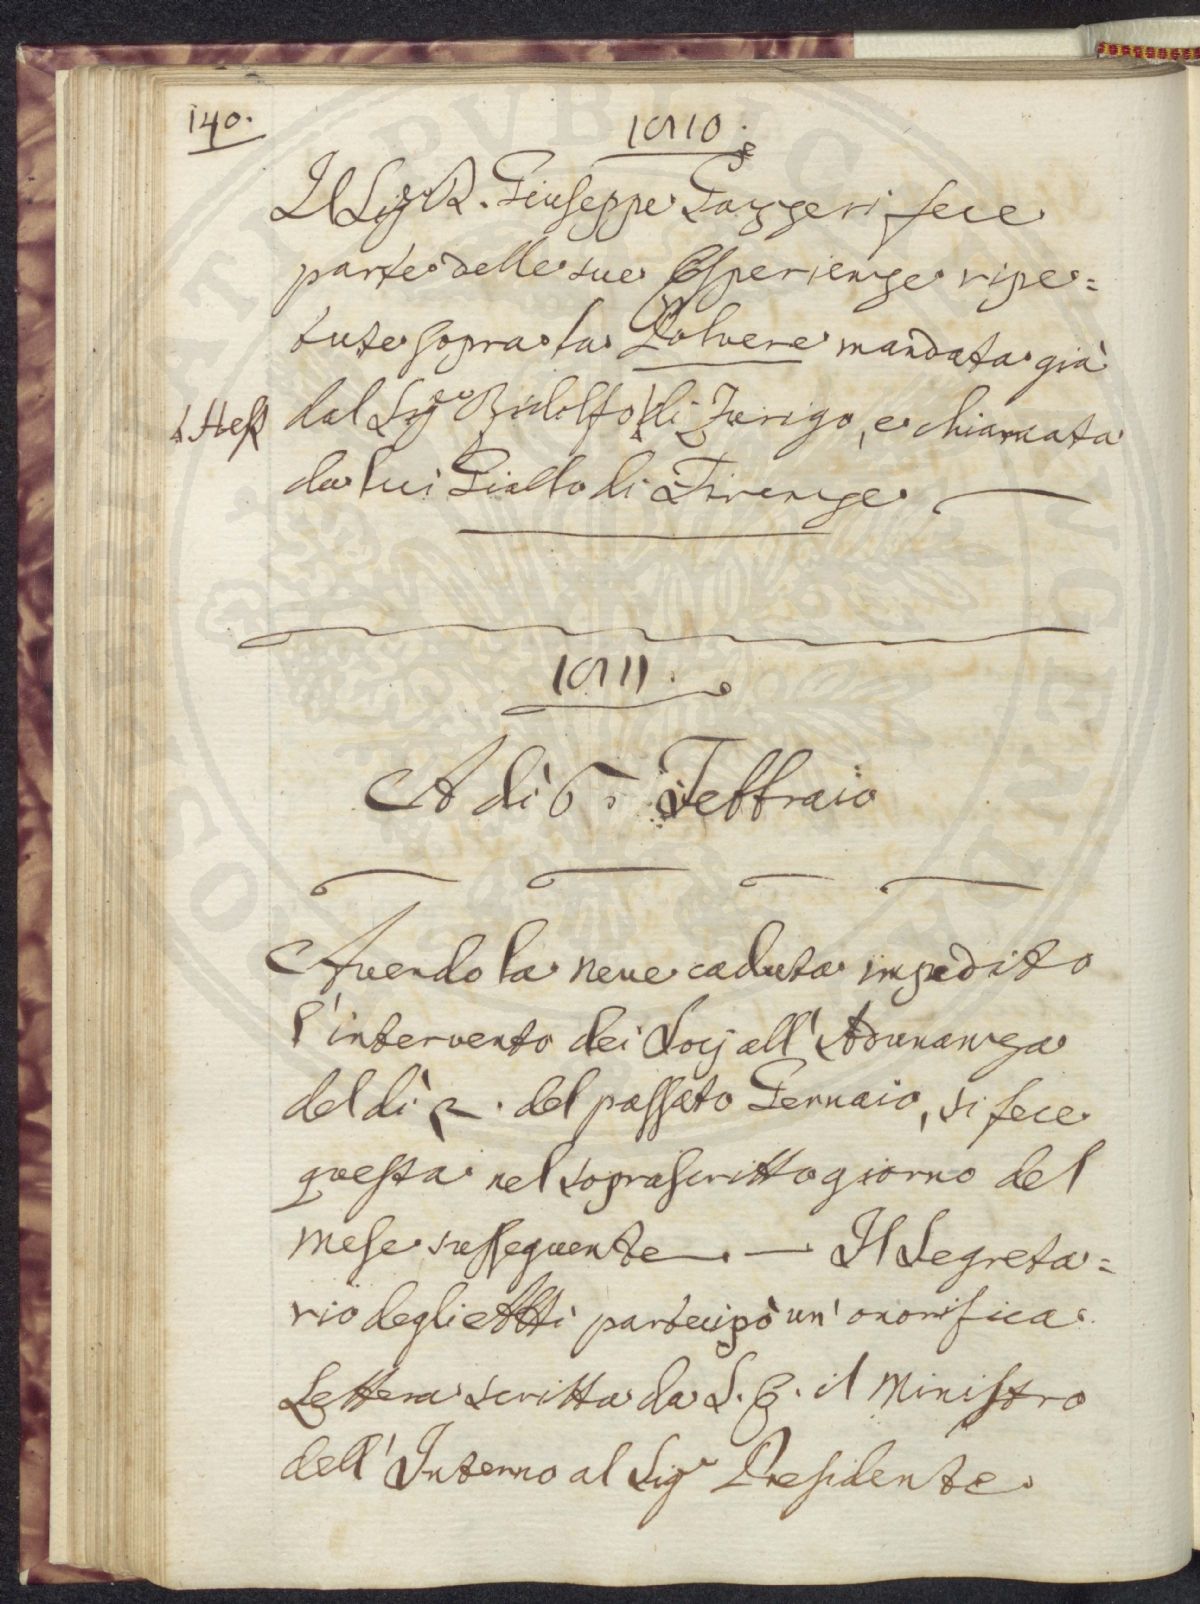 140.
1810.
Il Sig.r D. Giuseppe Gazzeri fece
parte delle sue Esperienze ripe=
tute sopra la Polvere mandata già
dal Sig.r Ridolfo di Zurigo, e chiamata
Hess
da lui Giallo di Firenze
1811.
A dì 6. Febbraio
Avendo la neve caduta impedito
l'intervento dei Socj all'Adunanza
del dì 2. del passato Gennaio, si fece
questa nel soprascritto giorno del
mese susseguente. — Il Segreta=
rio degli Atti partecipò un' onorifica
Lettera scritta da S. E. il Ministro
dell'Interno al Sig.r Presidente